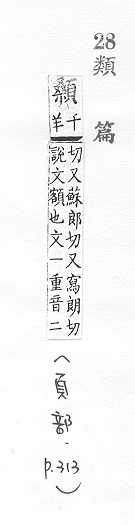 28類篇
顙
千羊
切又蘇郎切又寫朗切
說文額也文一重音二
(頁部.p.313)